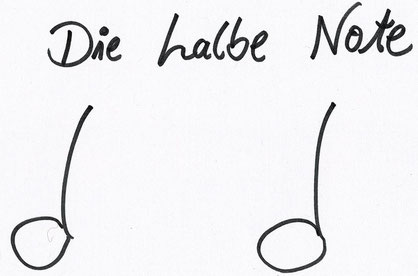 Die halbe Note